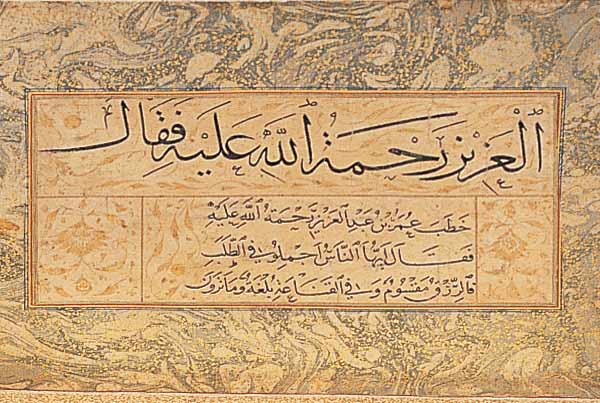 اَلْعَزِيزِ رَحْمَةُ اللّٰهِ عَلَيْهِ فَقَالَ
خَطَبَ عُمَرُ بْنُ عَبْدِ الْعَزِيزِ رَحْمَةُ اللّٰهِ عَلَيْهِ
فَقَالَ اَيُّهَا النَّاسُ اَجْمِلُوا فِي الطَّلَبِ
فَالرِّزْقُ مَقْسُومٌ وَفِي الْقَنَاعَةِ بُلْغَةٌ